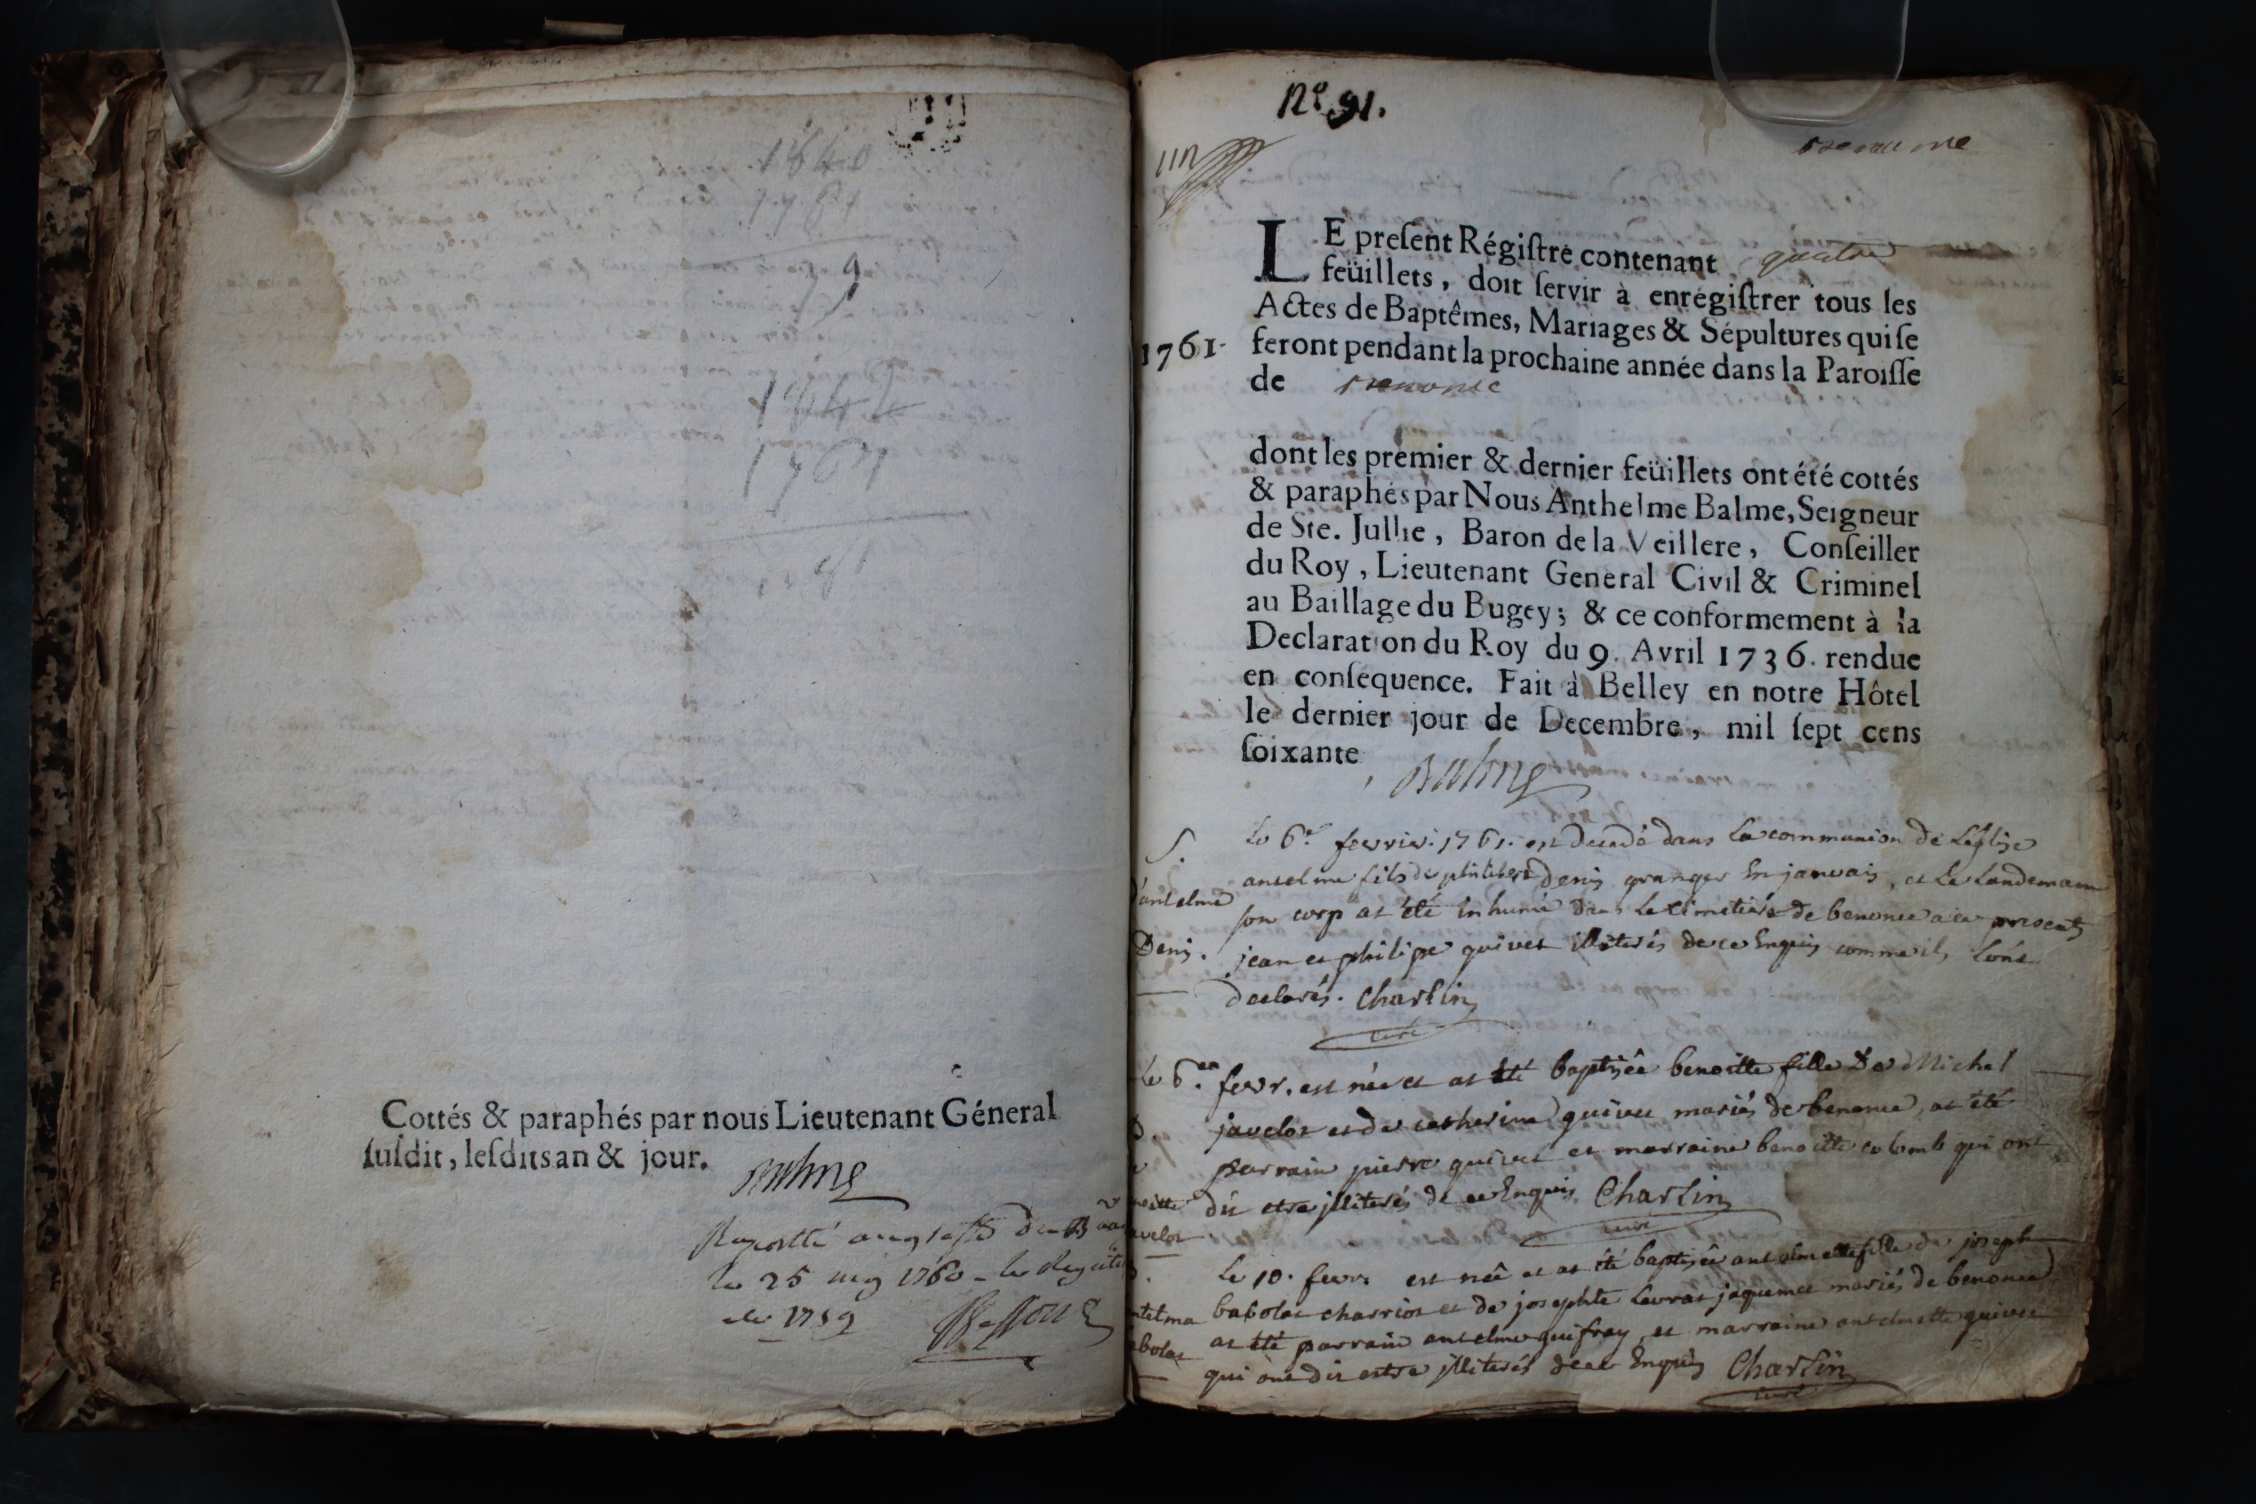 1840
1781
59
1842
1761
81
Cottés & paraphés par nous Lieutenant Géneral
suſdit, leſdits an & jour.
Balme
Raporté au greffe du
le 25 1760 le Regitre
de 1759
No. 91.
un
Le preſent Régiſtre contenant quatre
feüillets, doit ſervir à enregiſtrer tous les
Actes de Baptêmes, Mariages & Sépultures qui ſe
1761. feront pendant la prochaine année dans la Paroiſſe
de benonce
dont les premier & dernier feüillets ont été cottés
& paraphés par Nous Anthelme Balme, Seigneur
de Ste. Jullie, Baron de la Veillere, Conſeiller
du Roy, Lieutenant General Civil & Criminel
au Baillage du Bugey; & ce conformement à la
Declaration du Roy du 9. Avril 1736. rendue
en conſequence. Fait à Belley en notre Hôtel
le dernier jour de Decembre, mil ſept cens
ſoixante
Balme
S.
d'antelme
Denis.
Le 6e fevrier 1761. est decedé dans la communion de l'eglise
antelme fils de philibert Denis granger en janvais, et le landemain
son corp at été inhumé dans le cimetiére de benonce a ce presents
jean et philipe quivet illiterés de ce enquis comme ils l'ont
declarés. Charlin
curé
le 6.en fevr. est née et at été baptisée benoitte fille de Michel
javelot et de catherine quivet mariés de benonce, at été
parrain pierre quivet et marraine benoitte colomb qui ont
dit etre illiterés de ce enquis Charlin
curé
Le 10. fevr. est née et at été baptisée antelmette fille de joseph
babolat charriot et de josephte levrat jaquemet mariés de benonce
at été parrain antelme guifray et marraine antelmette quivet
qui ont dit estre illiterés de ce enquis Charlin
curé